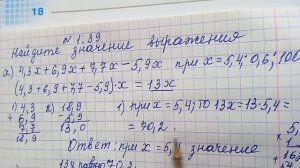 18
N 1.39
Найдите значение выражения
а) 4,3x+6,9x+7,7x-5,9x при x=5,4; 0,6; 100
(4,3+6,9+7,7-5,9)·x = 13x
1) 4,3 2) 18,9 1) при x=5,4; то 13x=13·5,4=
6,9 5,9 = 70,2.
7,7 13,0
18,9
Ответ: при x=5, значение